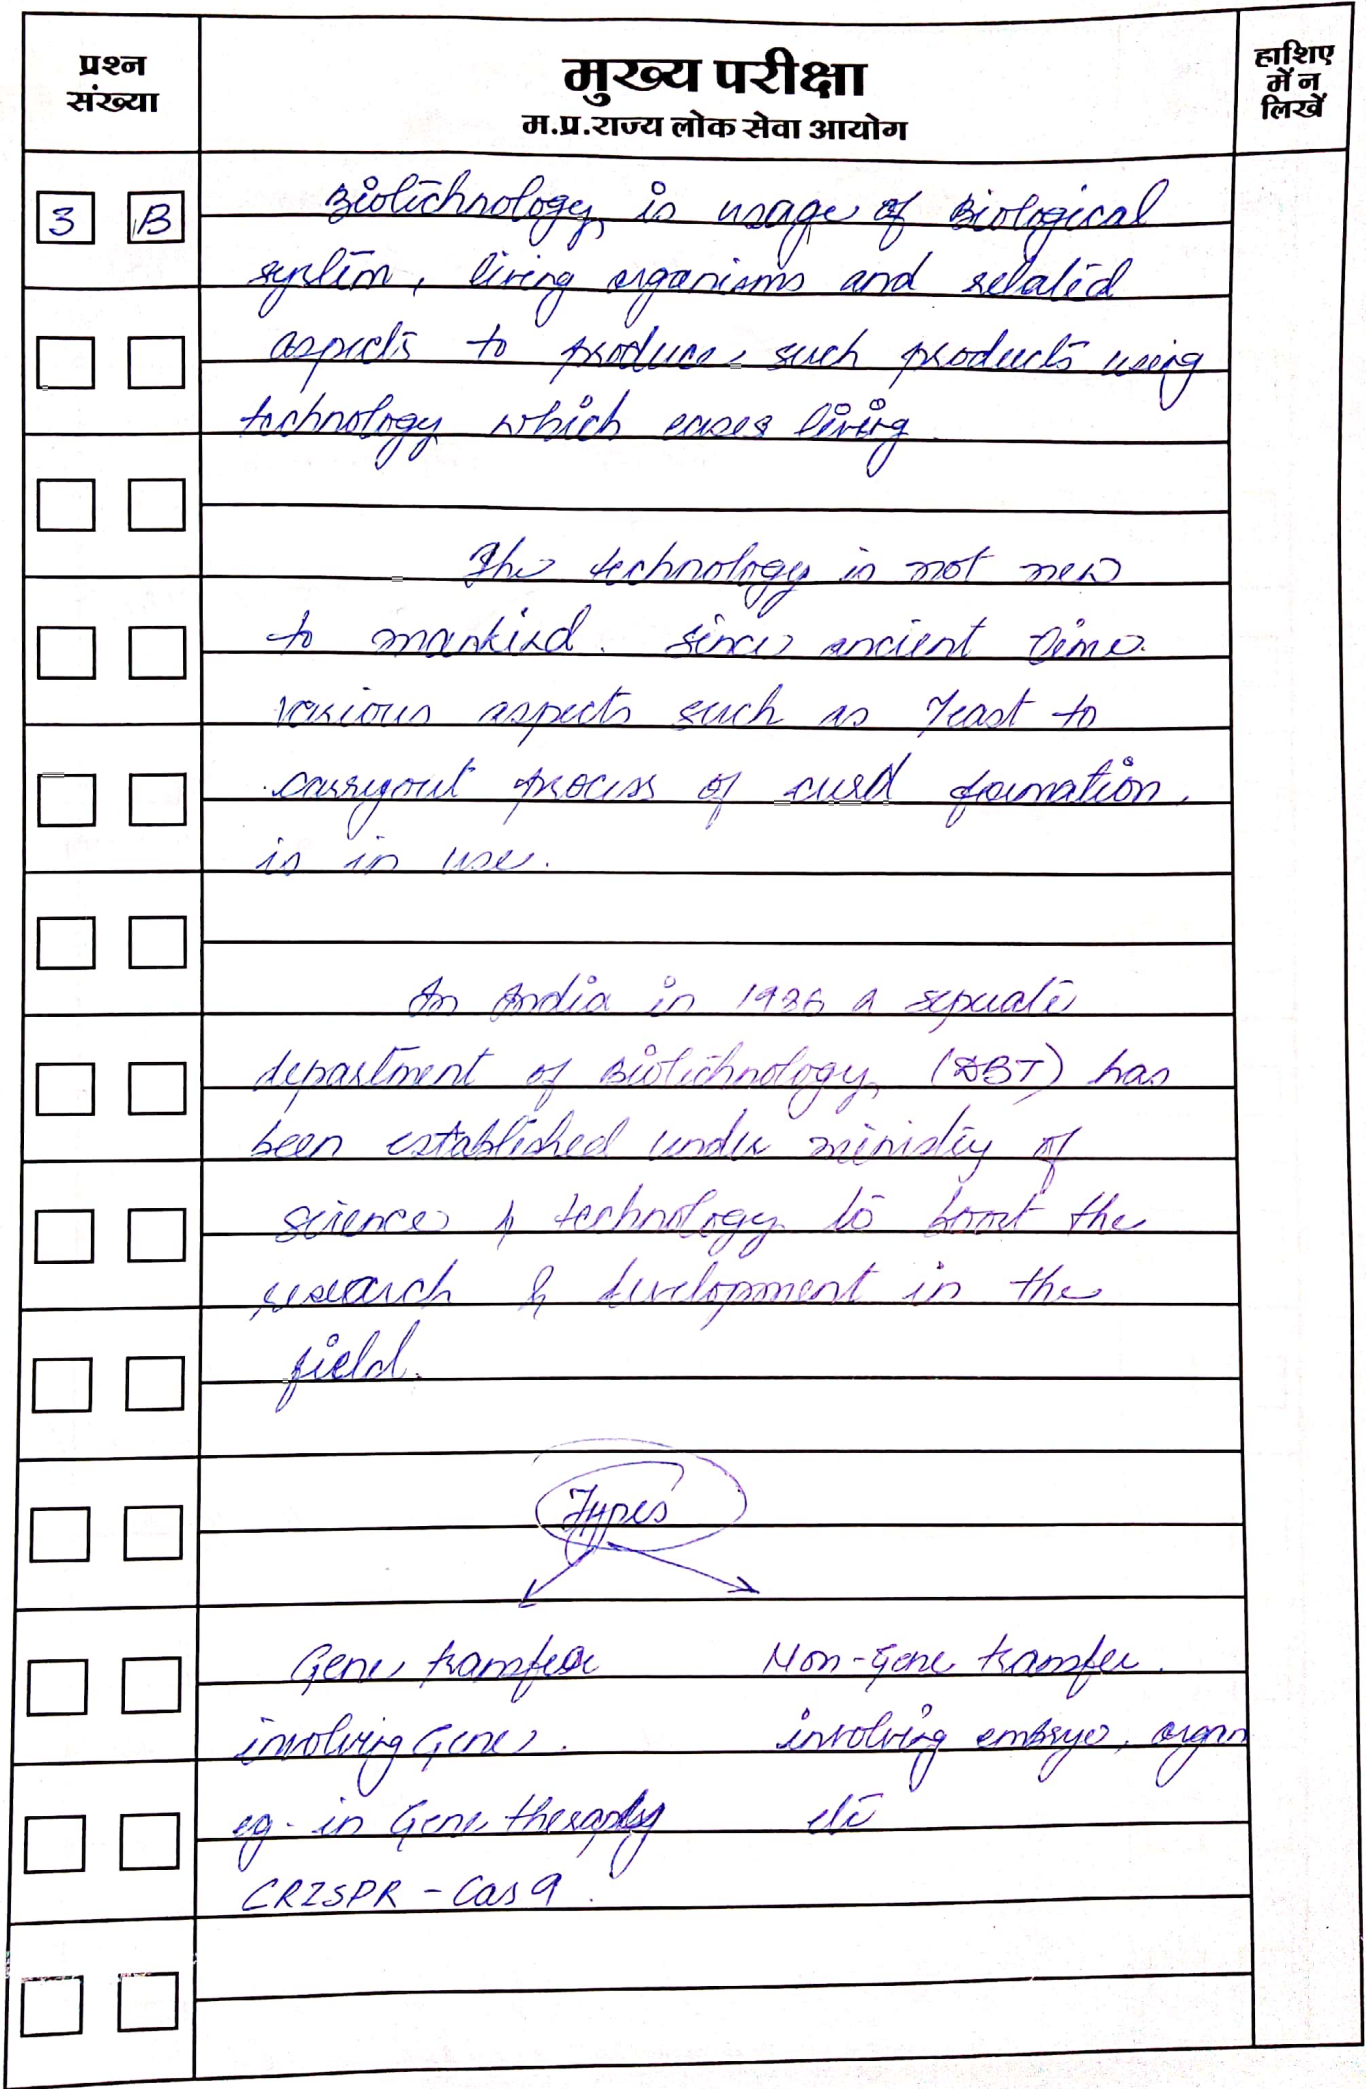 प्रश्न
संख्या
मुख्य परीक्षा
म.प्र.राज्य लोक सेवा आयोग
हाशिए
में न
लिखें
3 B
Biotechnology is usage of Biological
system, living organisms and related
aspects to produce such products using
technology which eases living.
The technology is not new
to mankind. Since ancient time
various aspects such as Yeast to
carryout process of curd formation
is in use.
In India in 1986 a separate
department of Biotechnology (DBT) has
been established under ministry of
science & technology to boost the
research & development in the
field.
Types
Gene transfer Non-Gene transfer.
involving Gene. involving embryo, organ
eg - in Gene therapy etc
CRISPR - Cas 9.